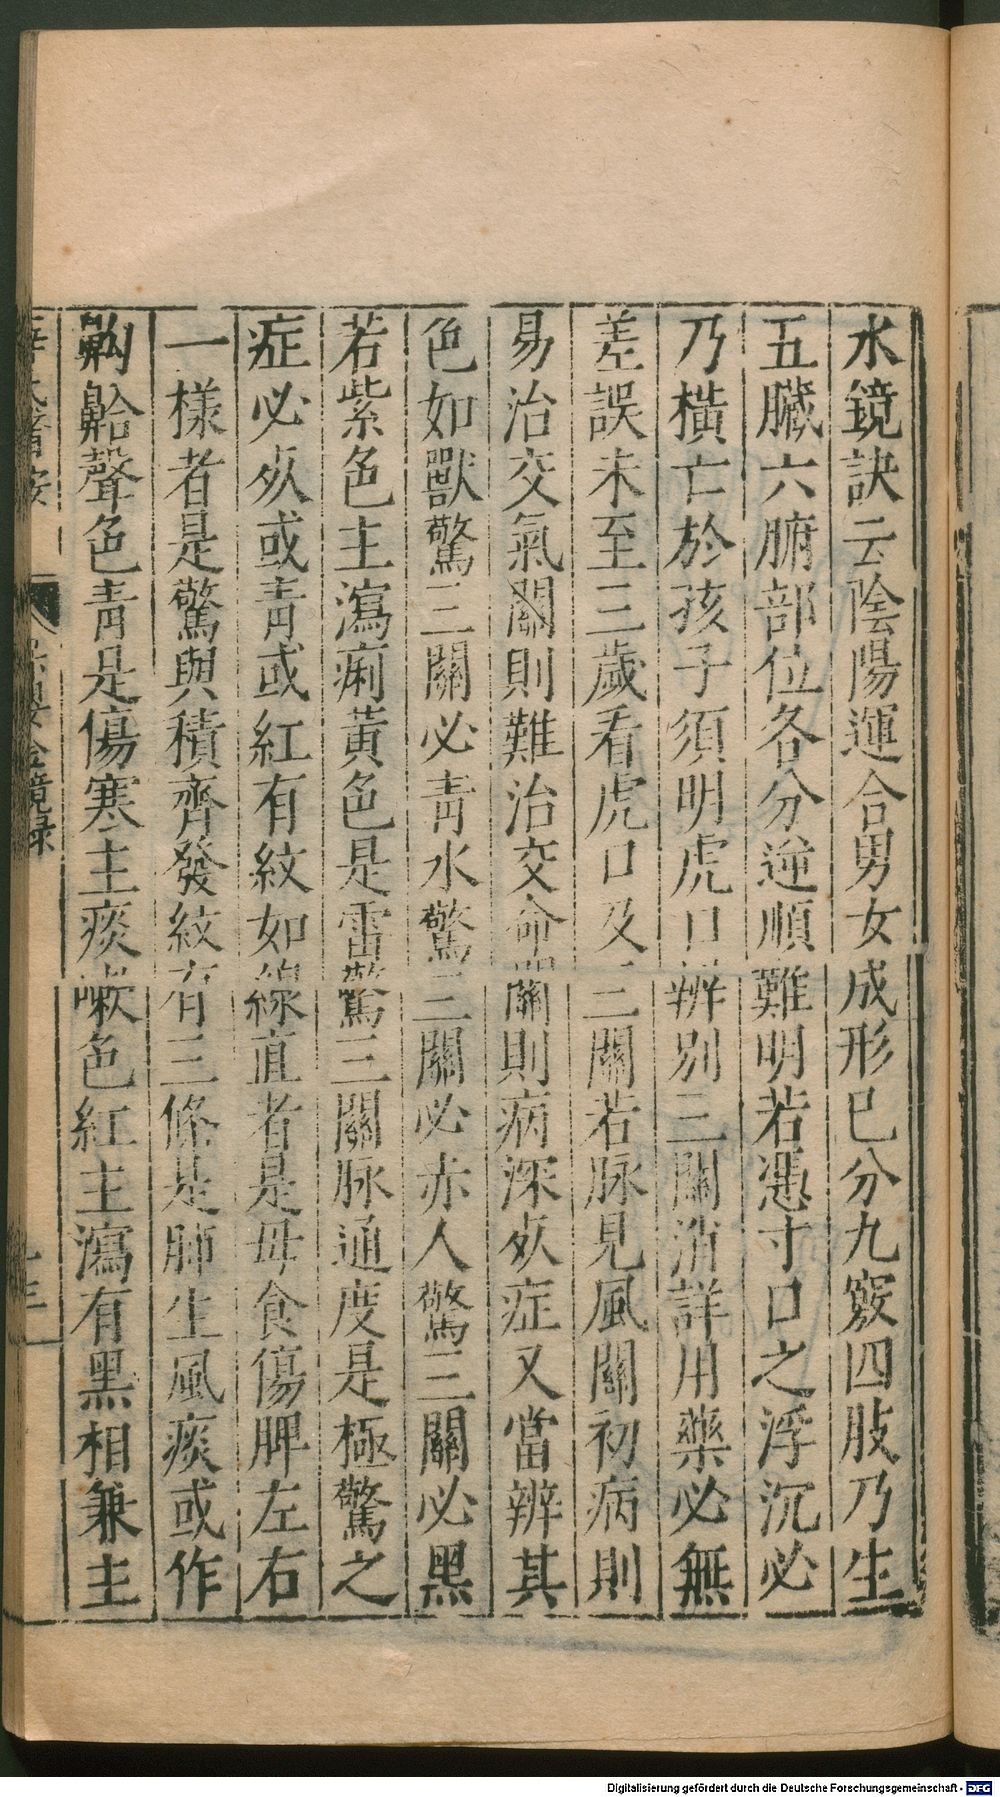 水鏡訣云陰陽運合男女成形已分九竅四肢乃生
五臟六腑部位各分逆順難明若憑寸口之浮沉必
乃橫亡於孩子須明虎口辨别三關消詳用藥必無
差誤未至三歲看虎口及三關若脉見風關初病則
易治交氣關則難治交命關則病深死症又當辨其
色如獸驚三關必青水驚三關必赤人驚三關必黑
若紫色主瀉痢黃色是雷驚三關脉通度是極驚之
症必死或青或紅有紋如線直者是母食傷脾左右
一樣者是驚與積齊發紋有三條是肺生風痰或作
齁䶎聲色青是傷寒主痰嗽色紅主瀉有黑相兼主
保嬰金鏡錄
Digitalisierung gefördert durch die Deutsche Forschungsgemeinschaft - DFG